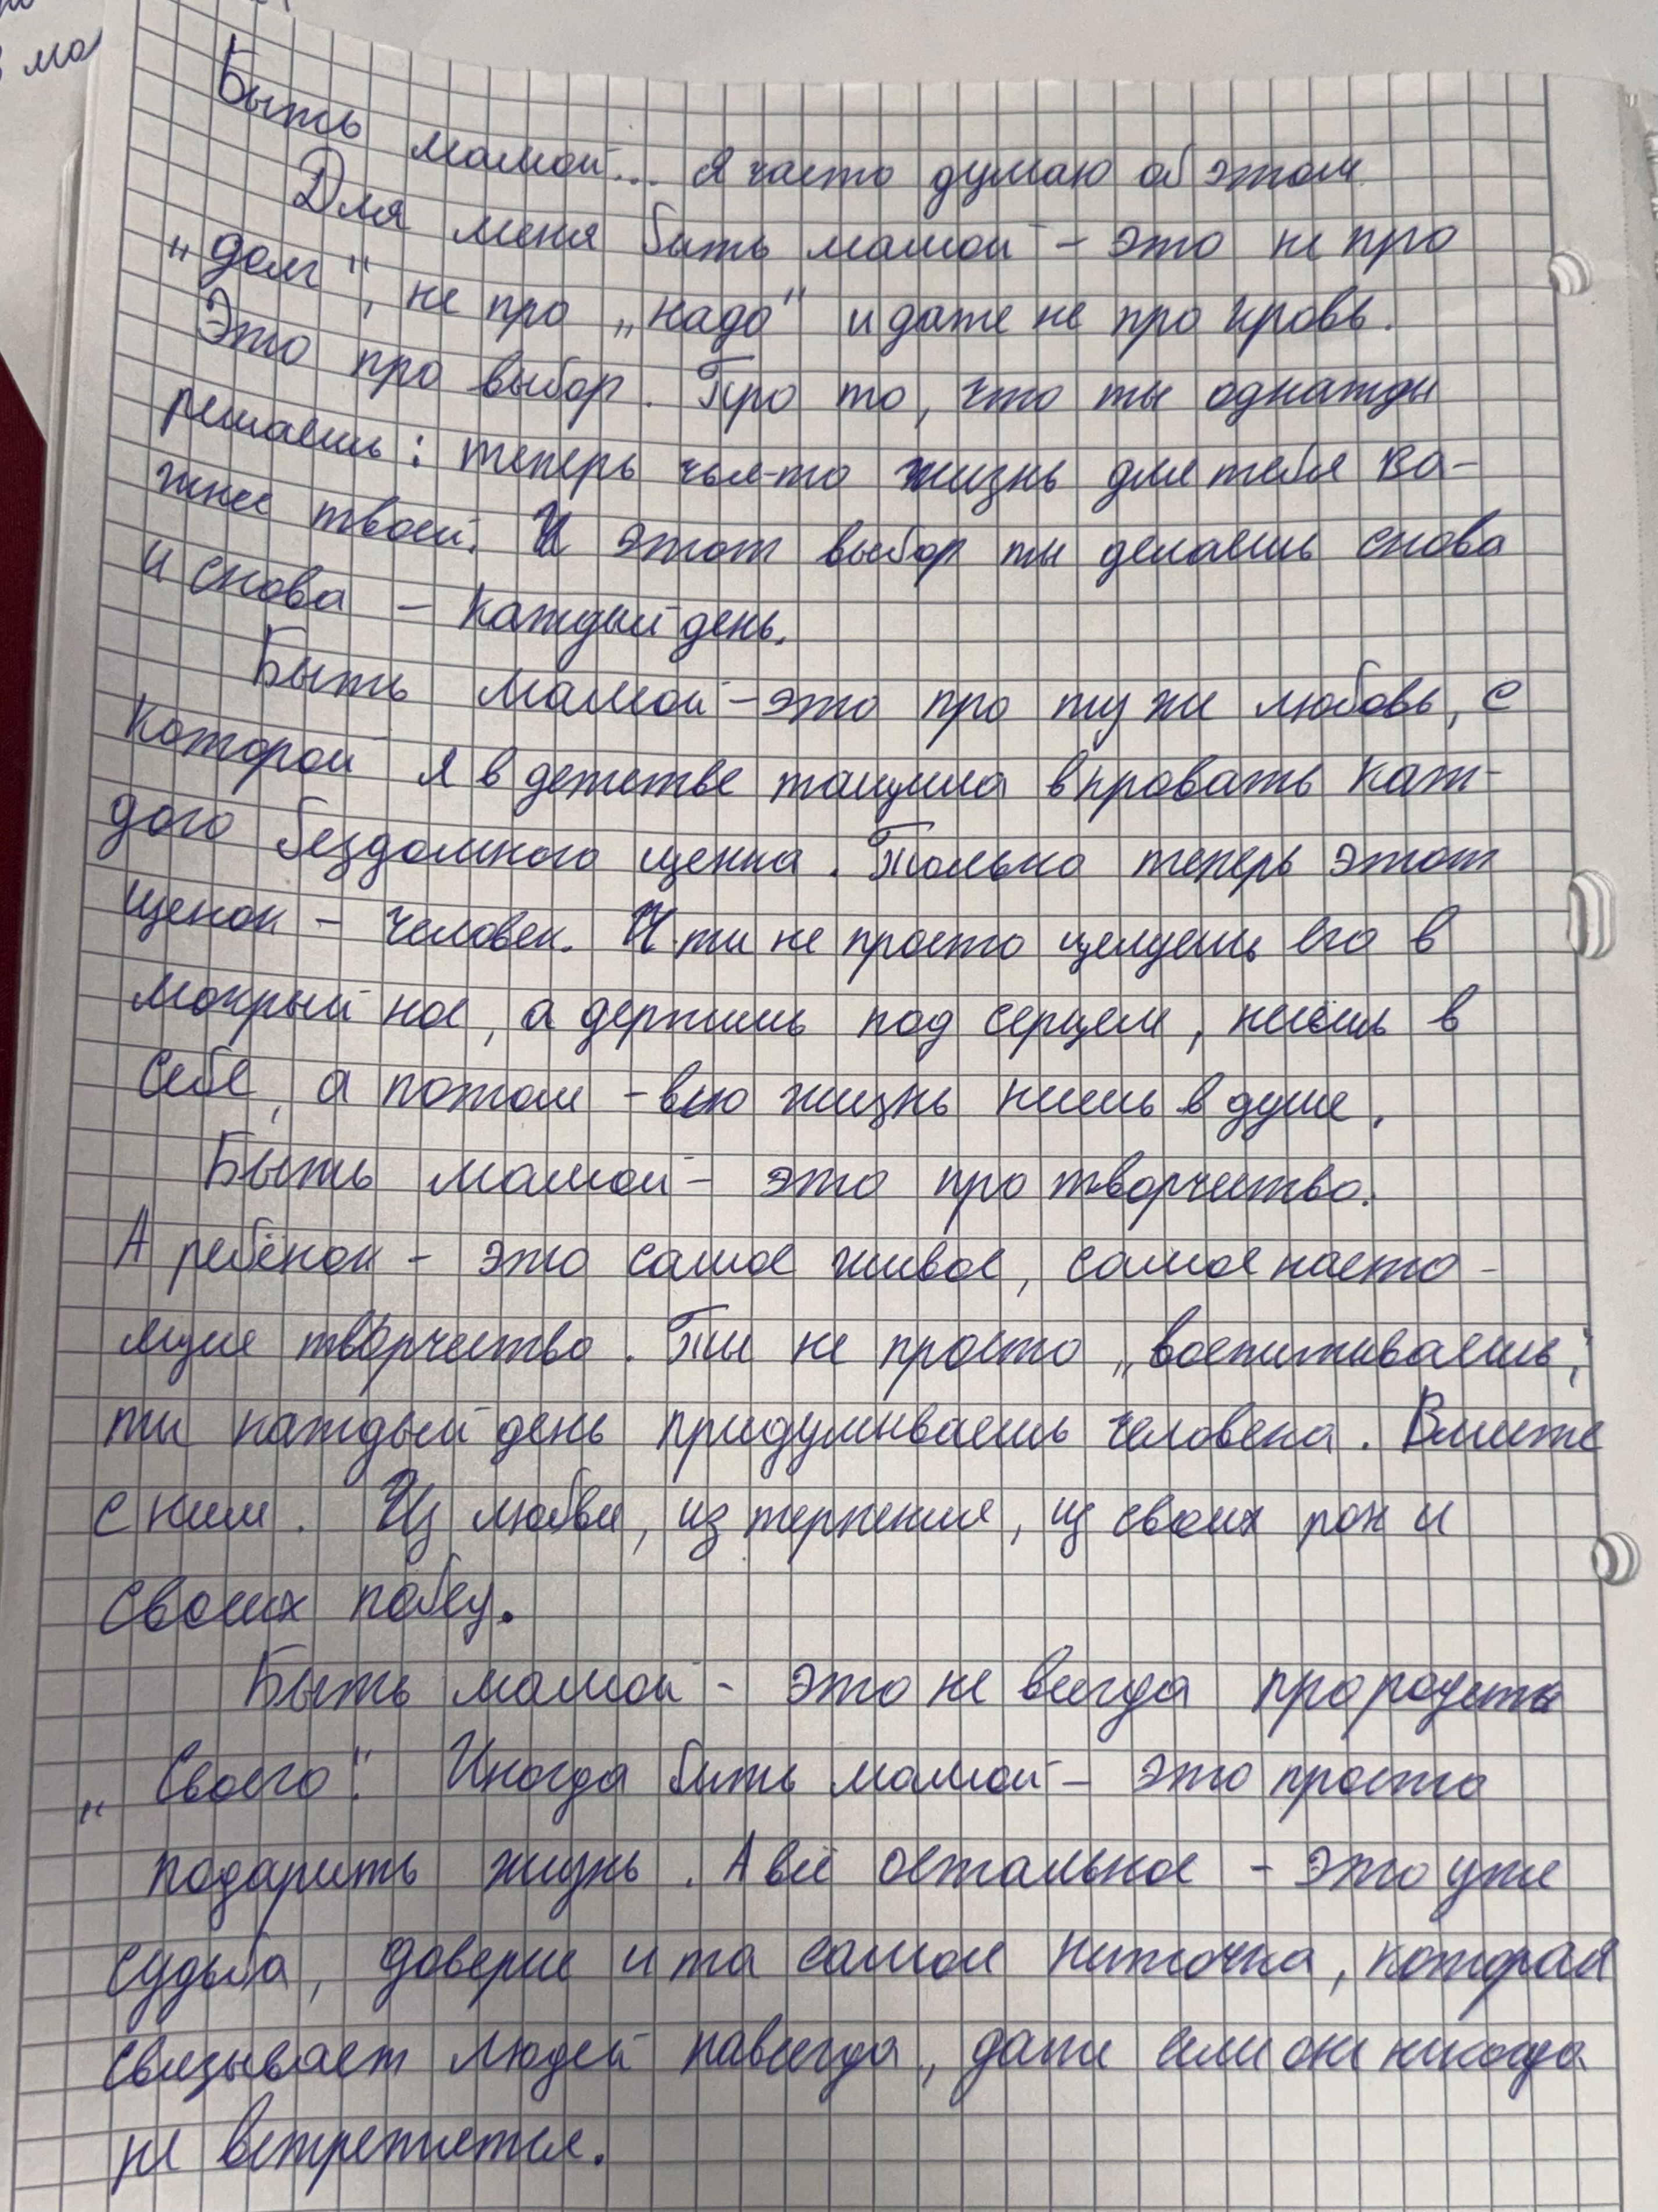 мо
Быть мамой... я часто думаю об этом.
Для меня быть мамой – это не про
„долг", не про „надо" и даже не про кровь.
Это про выбор. Про то, что ты однажды
решаешь: теперь чья-то жизнь для тебя ва-
жнее твоей. И этот выбор ты делаешь снова
и снова – каждый день.
Быть мамой – это про ту же любовь, с
которой я в детстве тащила в кровать каж-
дого бездомного щенка. Только теперь этот
щенок – человек. И ты не просто целуешь его в
мокрый нос, а держишь под серцем, несёшь в
себе, а потом – всю жизнь несешь в душе.
Быть мамой – это про творчество.
А ребёнок – это самое живое, самое насто-
ящее творчество. Ты не просто „воспитываешь",
ты каждый день придумываешь человека. Вместе
с ним. Из любви, из терпения, из своих рок и
своих побед.
Быть мамой – это не всегда про родить
„своего". Иногда быть мамой – это просто
подарить жизнь. А всё остальное – это уже
судьба, доверие и та самая ниточка, которая
связывает людей навсегда, даже если они никогда
не встретятся.